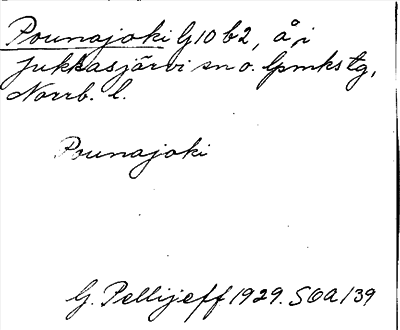 Pounajoki G10 b2, å i
Jukkasjärvi sn o. lpmks tg,
Norrb. l.
Pounajoki
G. Pellijeff 1929. SOA 139